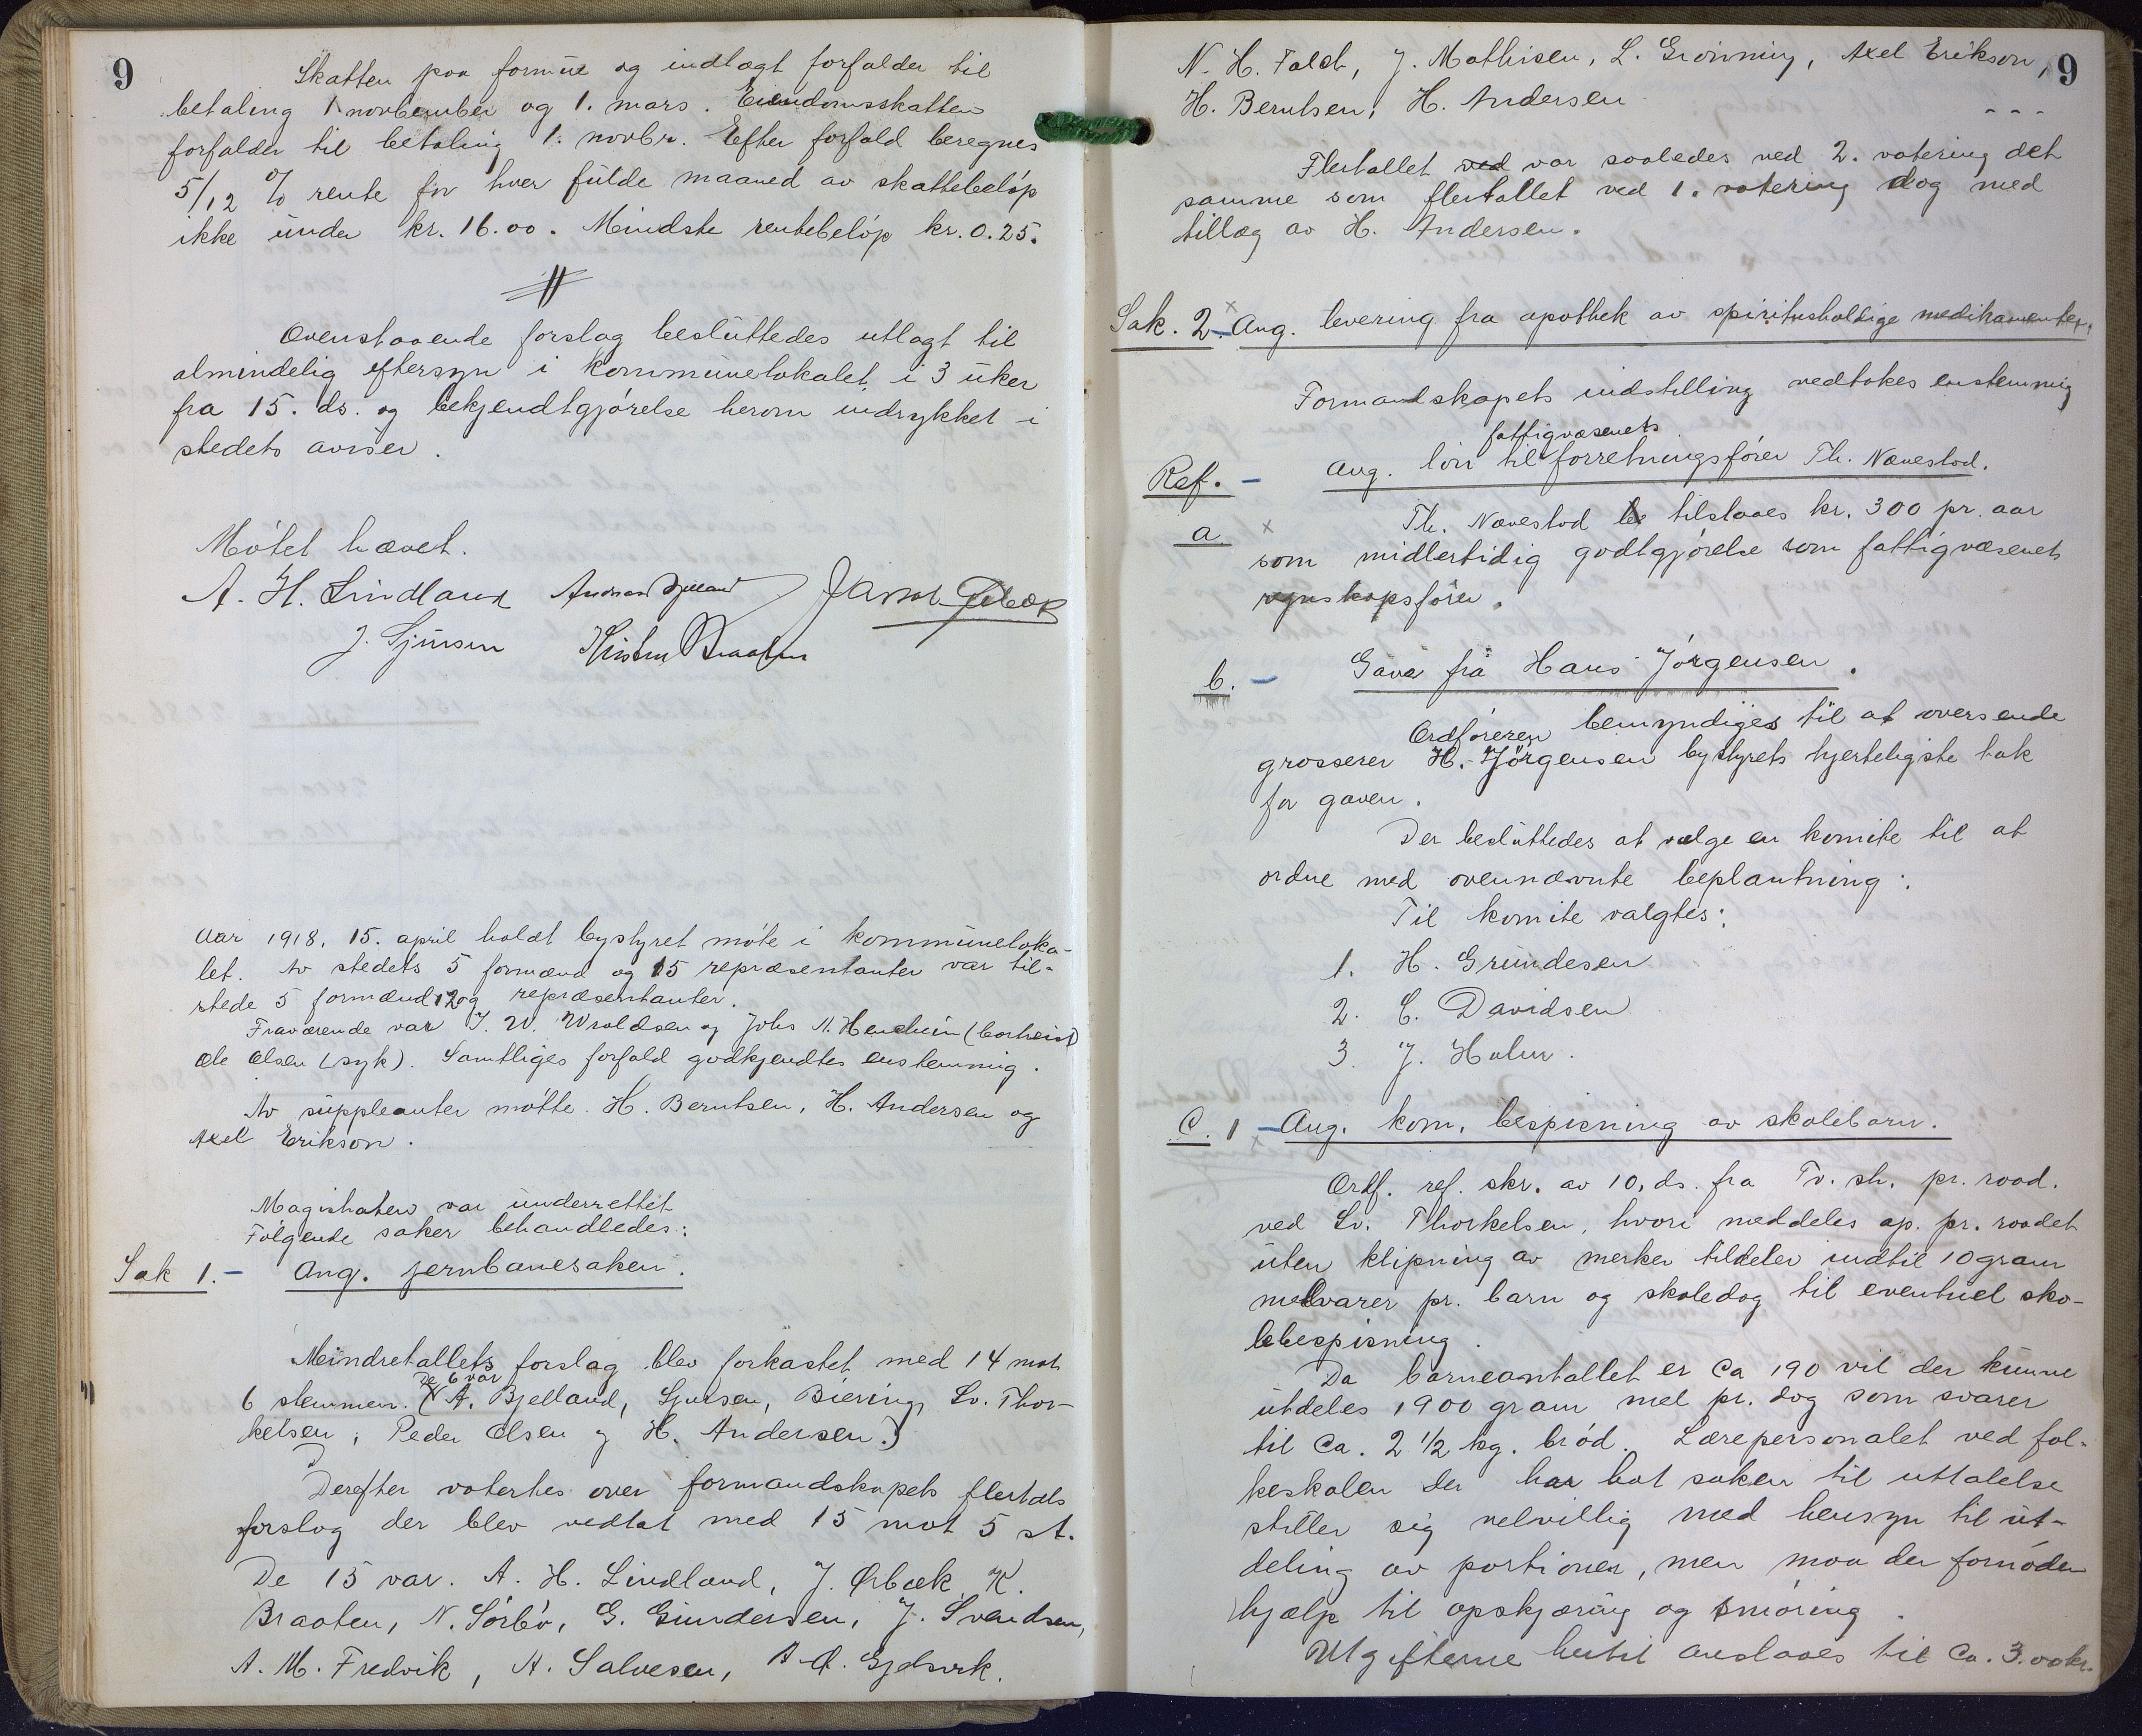 9
Skatten paa formue og indtægt forfalder til
betaling 1 novbember og 1. mars. Eiendomsskatten
forfalder til betaling 1. novbr. Efter forfald beregnes
5/12 % rente for hver fulde maaned av skattebeløp
ikke under kr. 16.00. Mindste rentebeløp kr. 0.25.
Ovenstaaende forslag besluttedes utlagt til
almindelig eftersyn i kommunelokalet i 3 uker
fra 15. ds. og bekjendtgjørelse herom indrykket i
stedets aviser.
Møtet hævet.
A. H. Lindland Andreas Bjelland
J. Sjursen Kristen Braaten
Aar 1918, 15. april holdt bystyret møte i kommuneloka-
let. Av stedets 5 formænd og 15 repræsentanter var til-
stede 5 formænd 12 og repræsentanter.
Fraværende var J. W. Wroldsen og Johs N. (bortreist)
Ole Olsen (syk). Samtliges forfald godkjendtes enstemmig.
Av suppleanter møtte. H. Berntsen, H. Andersen og
Axel Erikson.
Magistraten var underrettet
Følgende saker behandledes:
Sak 1. - Ang. jernbanesaken.
Mindretallets forslag blev forkastet med 14 mot
De 6 var
6 stemmer. (A. Bjelland, Sjursen, Biering, Sv. Thor-
kelsen, Peder Olsen og H. Andersen.)
Derefter votertes over formandskapets flertals
forslag der blev vedtat med 15 mot 5 st.
De 15 var. A. H. Lindland, J. Ørbæk, K.
Braaten, N. Sørbø, G. Gundersen, J. Svendsen,
A. M. Fredvik, A. Salvesen, A. O. Gjelsvik.
9
N. H. Falch, J. Mathisen, L. Grønning, Axel Erikson,
H. Berntsen, H. Andersen - - -
Flertallet ved var saaledes ved 2. votering det
samme som flertallet ved 1. votering dog med
tillæg av H. Andersen.
Sak. 2 - Ang. levering fra apothek av spiritusholdige medikamenter.
Formandskapets indstilling vedtokes enstemmig
fattigvæsenets
Ref. - Ang. løn til forretningsfører Th. Nævestad.
a. Th. Nævestad tilstaaes kr. 300 pr. aar
som midlertidig godtgjørelse som fattigvæsenets
regnskapsfører.
b. - Gave fra Hans Jørgensen.
Ordføreren bemyndiges til at oversende
grosserer H. Jörgensen bystyrets hjerteligste tak
for gaven.
Der besluttedes at vælge en komite til at
ordne med ovennævnte beplantning:
Til komite valgtes:
1. H. Grundesen
2. C. Davidsen
3. J. Holm.
C. 1 - Ang. kom. bespisning av skolebarn.
Ordf. ref. skr. av 10. ds. fra Tv. st. pr. raad.
ved Sv. Thorkelsen, hvori meddeles ap. pr. raadet
uten klipning av merker tildeler indtil 10 gram
melvarer pr. barn og skoledag til eventuel sko-
lebespisning.
Da barneantallet er ca 190 vil der kunne
utdeles 1900 gram mel pr. dag som svarer
til ca. 2 1/2 kg. brød. Lærepersonalet ved fol-
keskolen der har hat saken til uttalelse
stiller sig velvillig med hensyn til ut-
deling av portioner, men maa der fornøden
hjælp til opskjæring og smøring.
Utgifterne hertil anslaaes til ca. 3.00 kr.